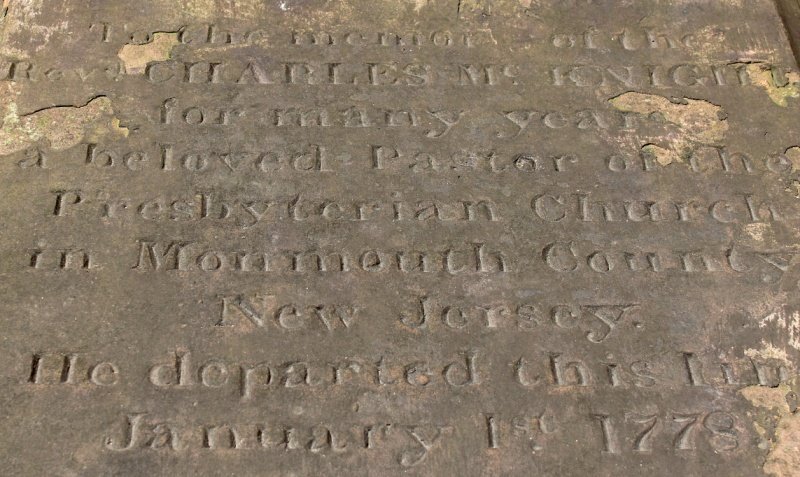 To the memory of the
Revd CHARLES Mc KNIGHT
for many years
a beloved Pastor of the
Presbyterian Church
in Monmouth County
New Jersey.
He departed this Life
January 1st 1778